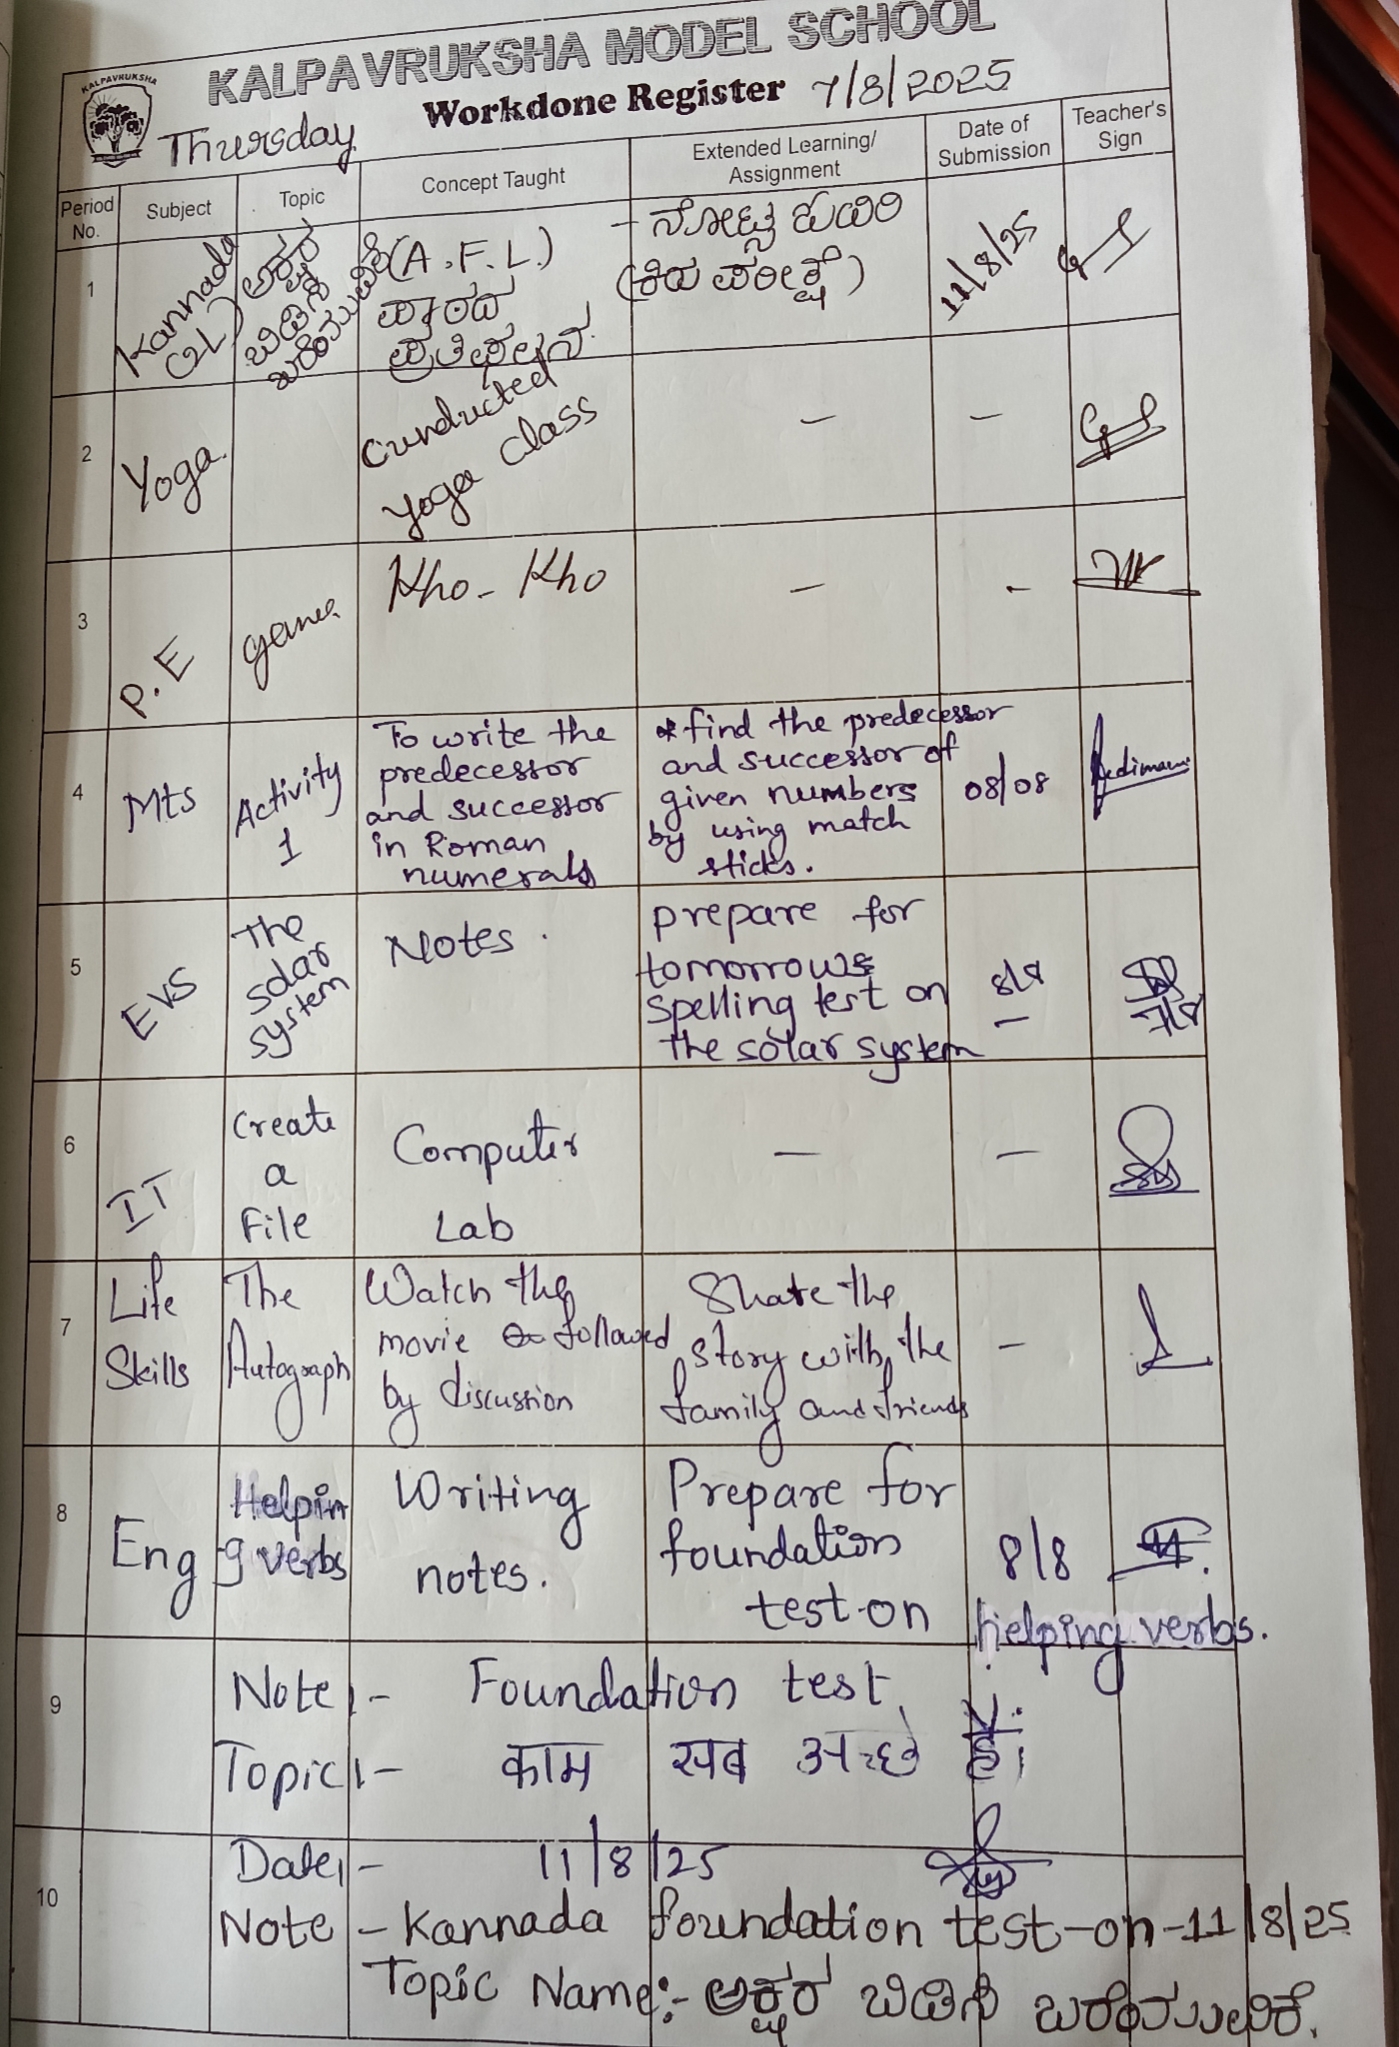 KALPAVRUKSHA
KALPAVRUKSHA MODEL SCHOOL
Workdone Register 7/8/2025
Thursday
Period No.
Subject
Topic
Concept Taught
Extended Learning/ Assignment
Date of Submission
Teacher's Sign
1
Kannada
(2L)
ಅಕ್ಷರ
ಬಿಡಿಸಿ
(A.F.L.)
ಪಾಠದ
ಪ್ರತಿಫಲನ.
- ನೋಟ್ಸ
(ಕಿರು ಪರೀಕ್ಷೆ)
11/8/25
2
Yoga
Conducted
Yoga class
—
—
3
P.E
game
Kho-Kho
—
-
4
Mts
Activity
1
To write the
predecessor
and successor
in Roman
numerals
* find the predecessor
and successor of
given numbers
by using match
sticks.
08/08
5
EVS
The
solar
system
Notes.
prepare for
tomorrows
spelling test on
the solar system
8/8
—
7/8
6
IT
Create
a
File
Computer
Lab
—
—
7
Life
Skills
The
Autograph
Watch the
movie followed
by discussion
Share the
story with the
family and friends
—
8
Eng
Helpin
g verbs
Writing
notes.
Prepare for
foundation
test-on
helping verbs.
8/8
9
Note:- Foundation test
Topic:- काम सब अच्छे हैं।
Date:- 11/8/25
10
Note - Kannada foundation test-on-11/8/25
Topic Name:- ಅಕ್ಷರ ಬಿಡಿಸಿ